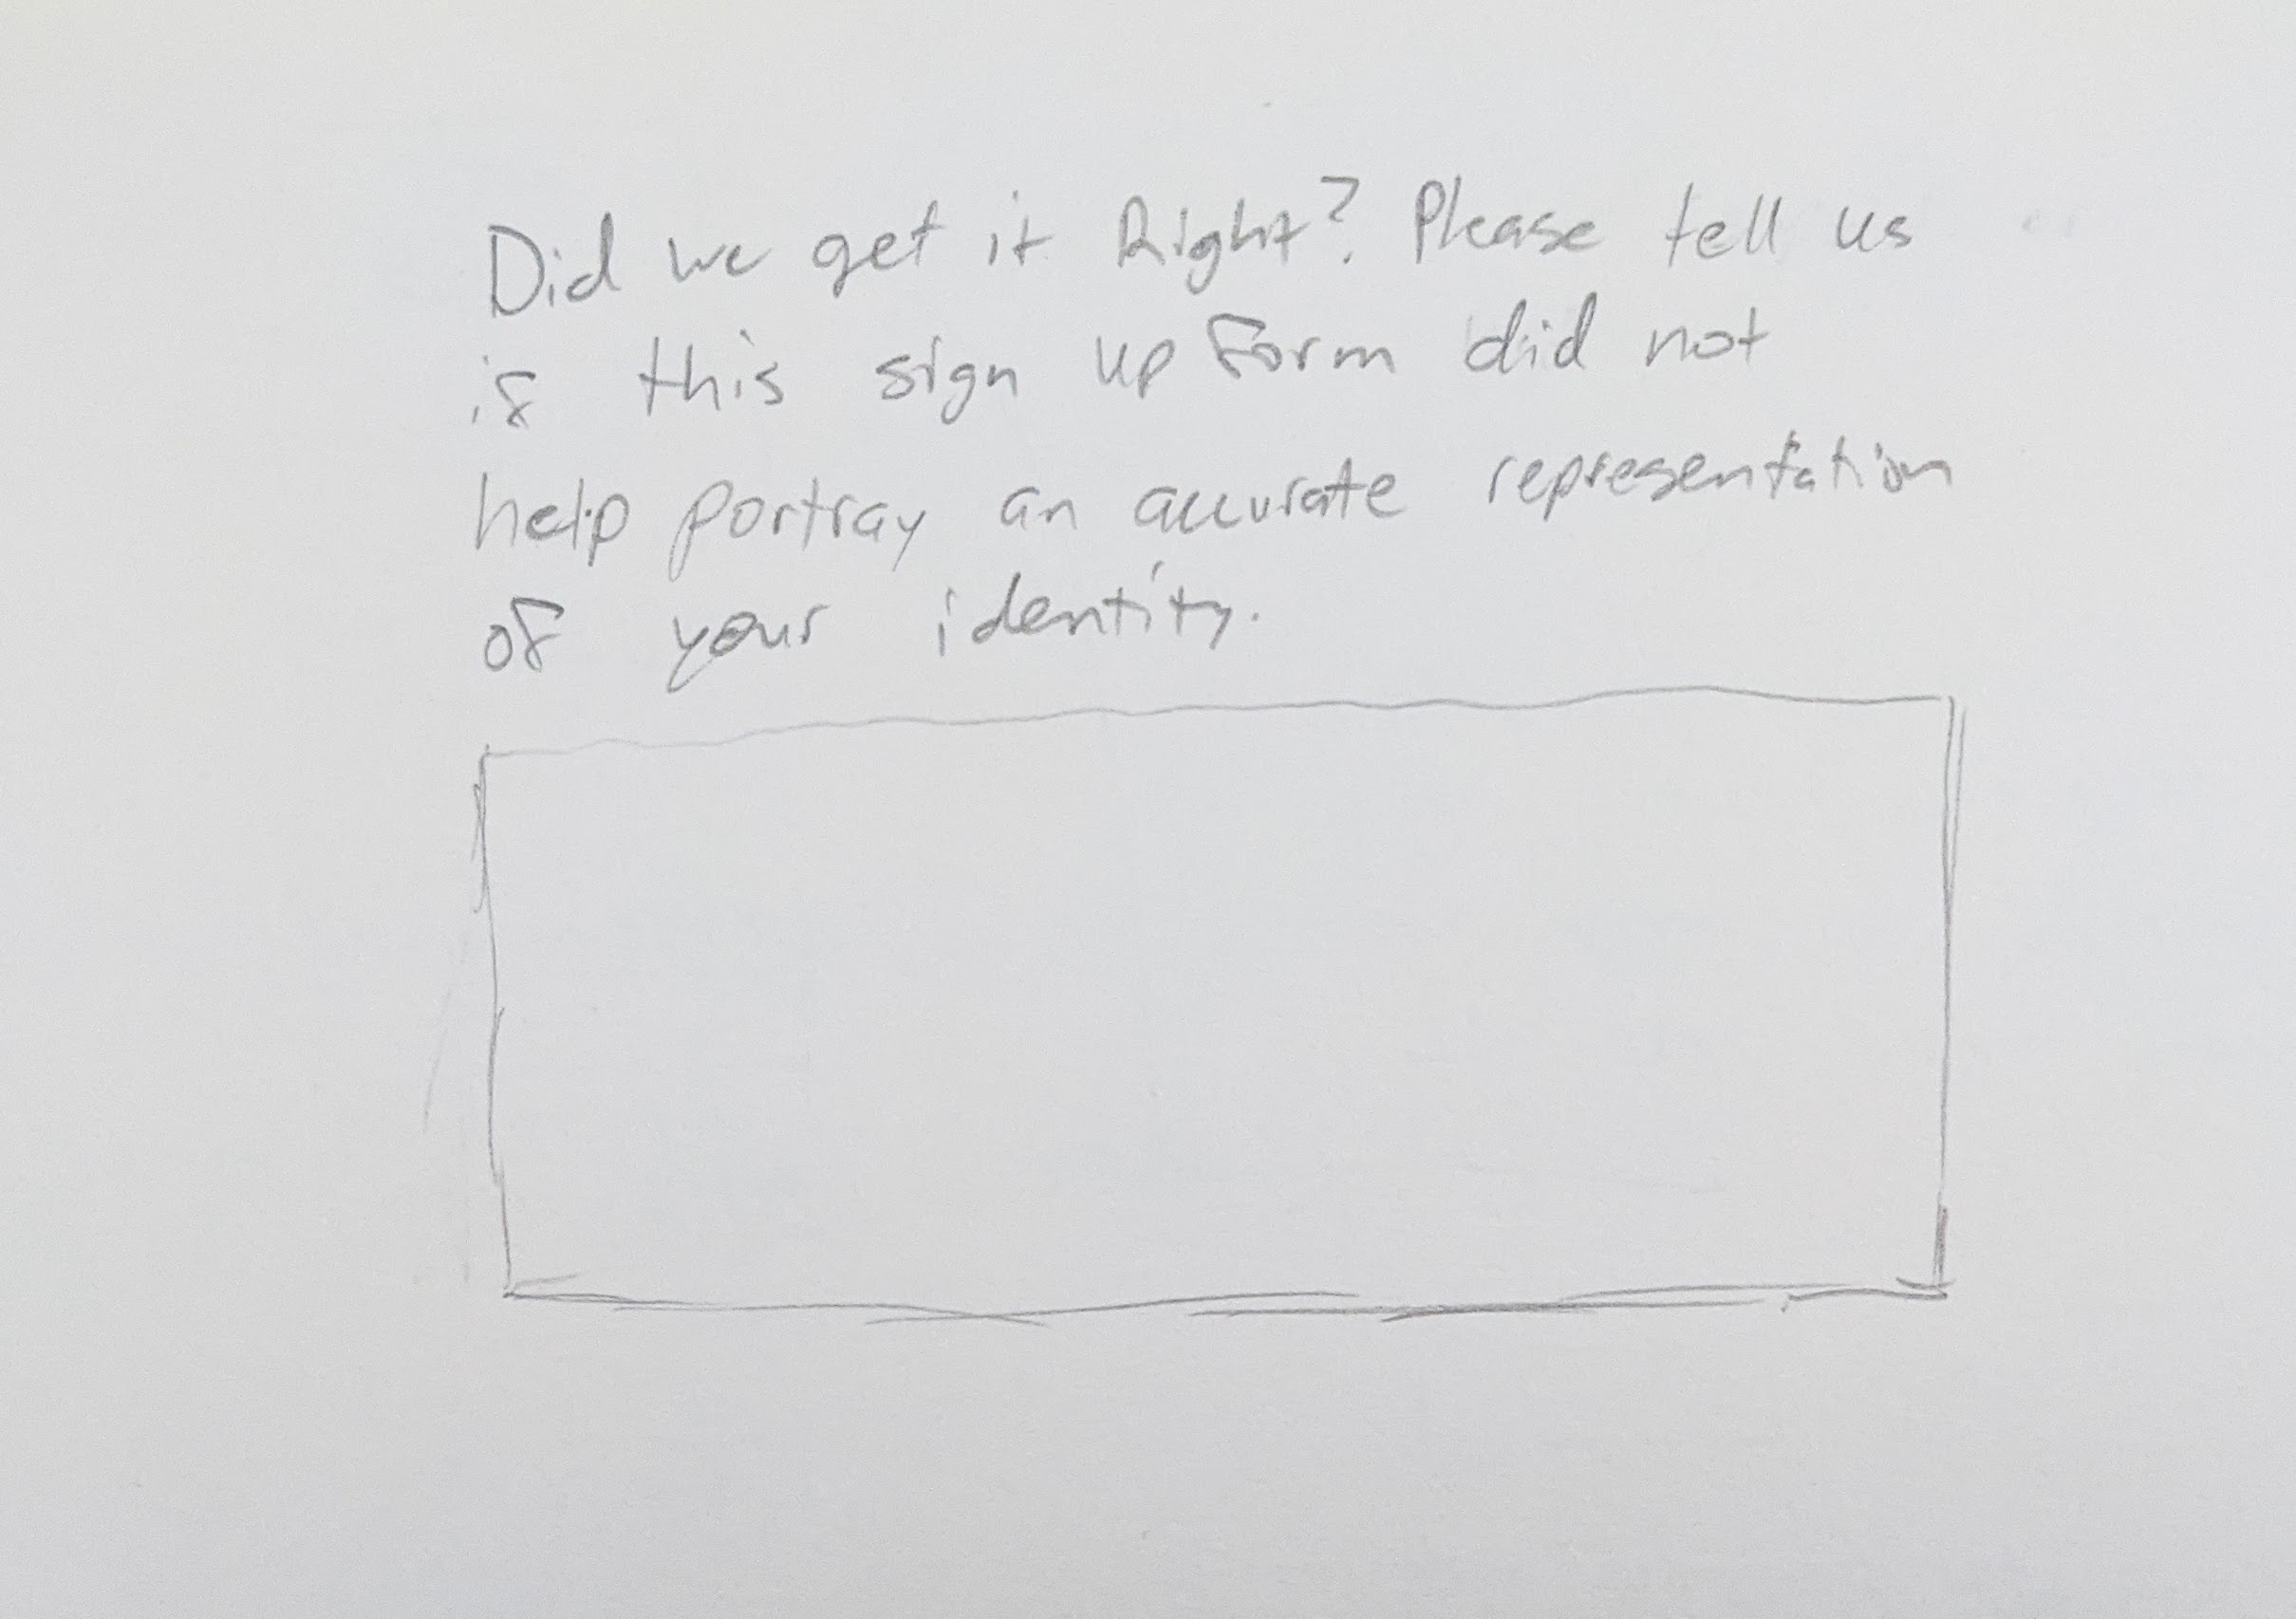 Did we get it Right? Please tell us
if this sign up form did not
help portray an accurate representation
of your identity.